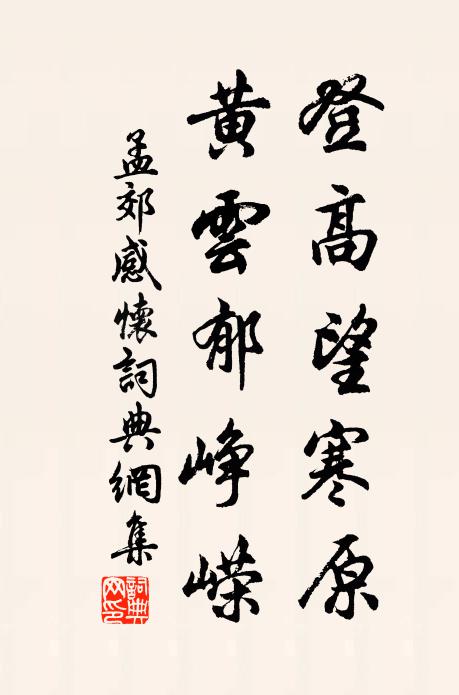 登高望寒原
黄雲郁峥嶸
孟郊感懷詞典網集
詞典網印